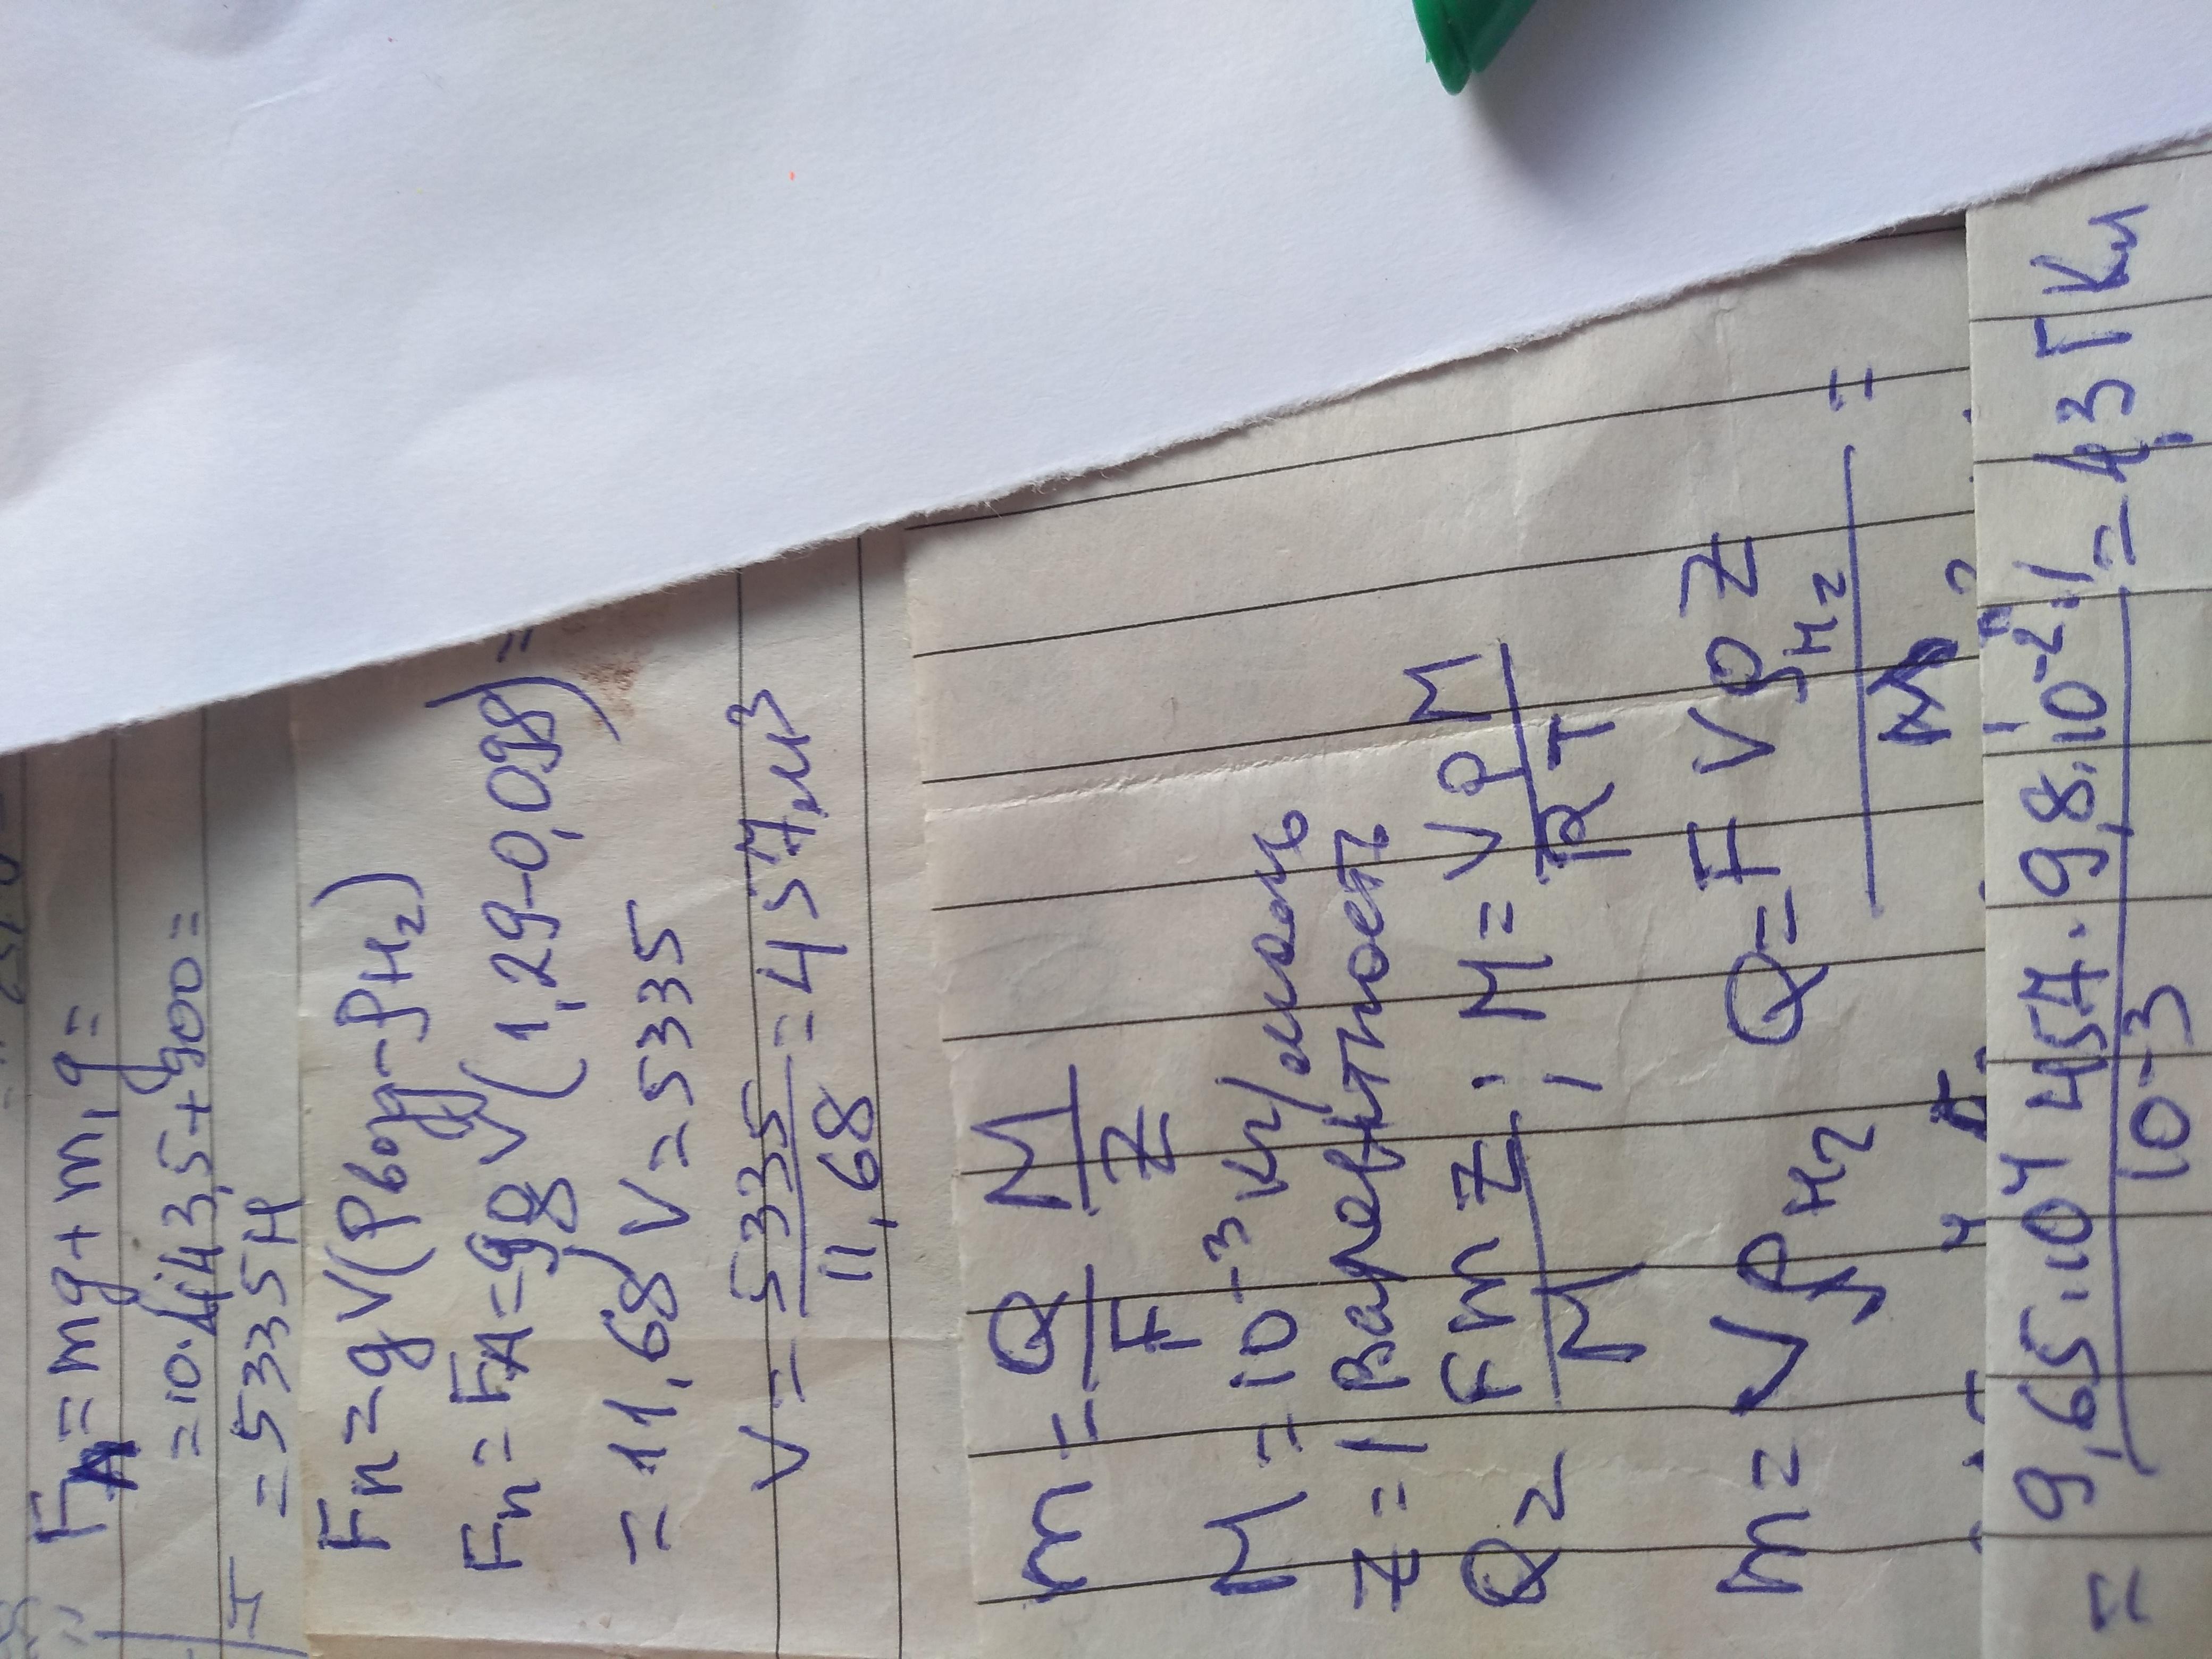 F_A = mg + m₁g =
= 10·443,5 + 900 =
= 5335 Н
Fп = gV(ρвозд - ρH₂)
Fп = F_A = 9,8 V(1,29 - 0,098) =
= 11,68 V = 5335
V = 5335/11,68 = 457 м³
m = Q/F M/Z
M = 10⁻³ кг/моль
Z = 1 Валентность
Q = F m Z/M ; M = V P M/R T
m = VρH₂ Q = F V ρH₂ Z/M =
= 9,65·10⁴ 457·9,8·10⁻²·1/10⁻³ = 4,3 ГКл